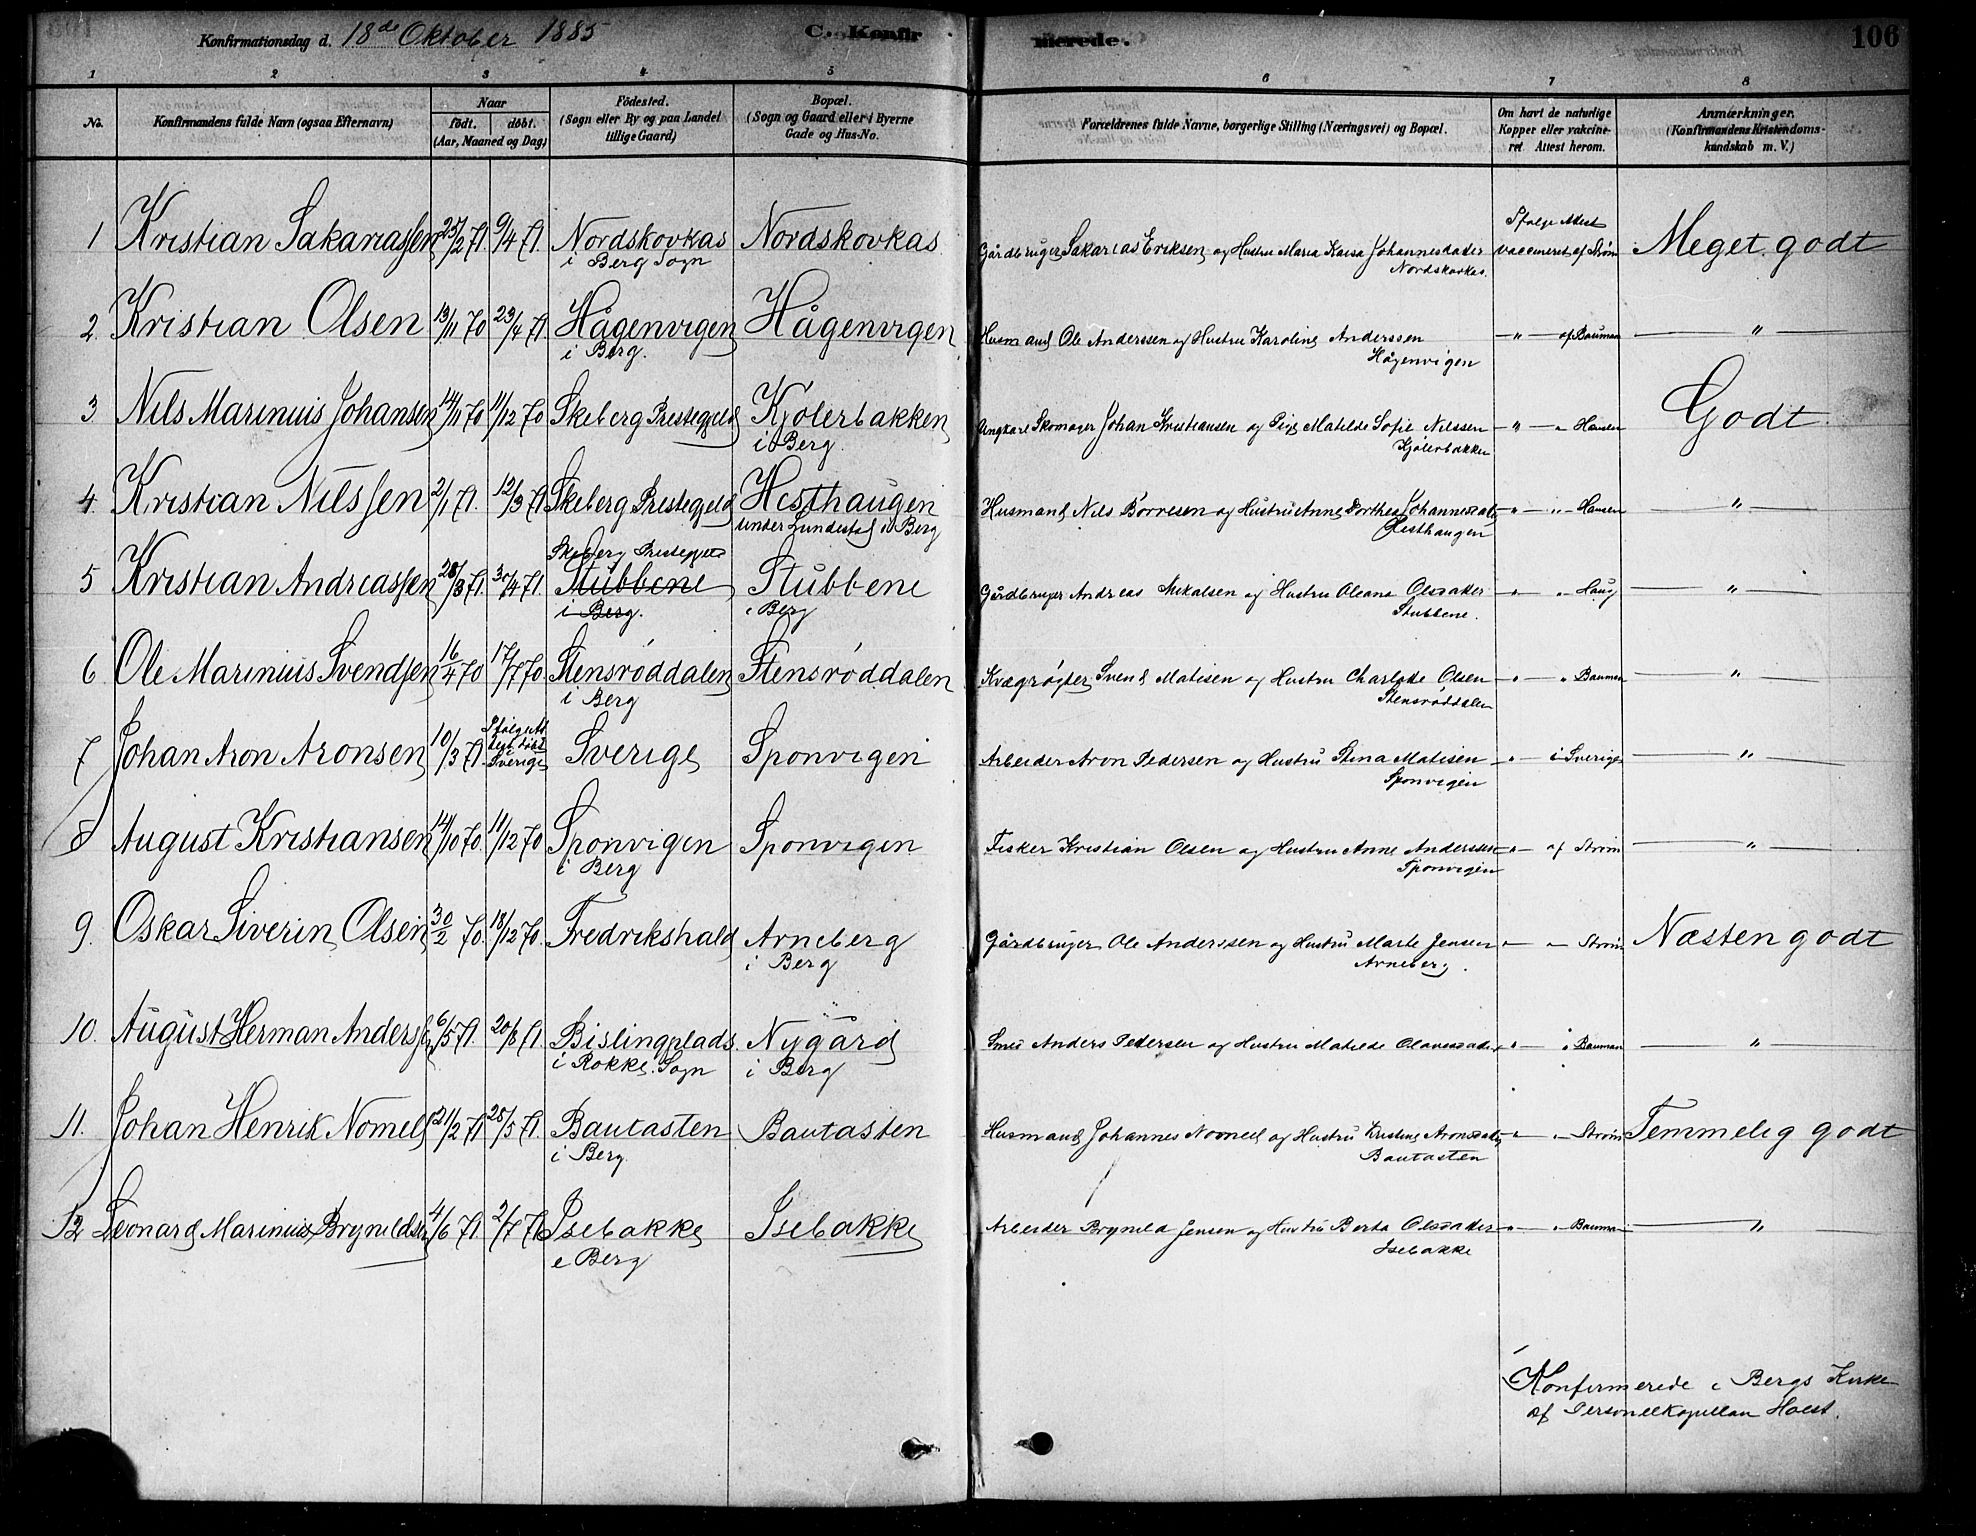 Konfirmationsdag d. 18de Oktober 1885 C. Konfirmerede. 106
1 2 3 4 5 6 7 8
No. Konfirmandens fulde Navn (ogsaa Efternavn) Naar født. døbt. (Aar, Maaned og Dag) Fødested. (Sogn eller By og paa Landet tillige Gaard) Bopæl. (Sogn og Gaard eller i Byerne Gade og Hus-No. Forældrenes fulde Navne, borgerlige Stilling (Næringsvei) og Bopæl. Om havt de naturlige Kopper eller vakcineret Attest herom. Anmærkninger. (Konfirmandens Kristendomskundskab m. V.)
1 Kristian Sakariassen 25/2 71. 9/4 71. Nordskovkas i Berg Sogn Nordskovkas Gårdbruger Sakarias Eriksen og Hustru Maria Kaisa Johannesdatter Nordskovkas. Ifølge Attest vaccineret af Strøm Meget godt
2. Kristian Olsen 13/11 70 23/4 71. Hågenvigen i Berg. Hågenvigen Husmand Ole Anderssen og Hustru Karoline Anderssen Hågenvigen — " — af Bauman — " —
3 Nils Marinius Johansen 14/11 70 11/12 70 Skeberg Prestegjeld Kjølerbakken i Berg. Ungkarl Skomager Johan Kristiansen og Pige Matilde Sofie Nilssen Kjølerbakken — " — " Hansen Godt
4. Kristian Nilssen 2/1 71. 12/3 71 Skeberg Prestegjeld Hesthaugen under Lundestad i Berg Husmand Nils Børresen og Hustru Anne Dorthea Johannesdatter Hesthaugen " — " — Hansen — " —
5 Kristian Andreassen 28/3 71. 30/4 71. Skeberg Prestegjeld Stubbene i Berg. Stubbene i Berg Gårdbruger Andreas Mikalsen og Hustru Oleane Olsdatter Stubbene. — " — " Haug — " —
6 Ole Marinius Svendsen 16/4 70 17/7 70. Stensrøddalen i Berg Stensrøddalen Kvægrøgter Svend Matisen og Hustru Charlotte Olsen Stensrøddalen — " — " Bauman — " —
7 Johan Aron Aronsen 10/3 71. Ifølge Attest døbt i Sverige Sverige Sponvigen Arbeider Aron Pedersen og Hustru Stina Matisen Sponvigen — " — i Sverige — " —
8 August Kristiansen 14/10 70. 11/12 70 Sponvigen i Berg Sponvigen Fisker Kristian Olsen og Hustru Anne Anderssen Sponvigen — " — af Strøm — " —
9. Oskar Siverin Olsen 30/2 70. 18/12 70. Fredrikshald Arneberg i Berg Gårdbruger Ole Anderssen og Hustru Marte Jensen Arneberg. " — " Strøm Næsten godt
10. August Herman Andersen 6/5 71. 20/8 71. Bislingplads i Rokke Sogn Nygård i Berg Smed Anders Pedersen og Hustru Matilde Olavesdatter " — " Bauman — " —
11. Johan Henrik Nomell 21/2 71 28/5 71. Bautasten i Berg. Bautasten Husmand Johannes Nomell og Hustru Kristine Aronsdatter Bautasten " — " Strøm Temmelig godt
12 Leonard Marinius Bryneldsen 4/6 71. 2/7 71 Isebakke i Berg Isebakke Arbeider Bryneld Jensen og Hustru Berta Olsdatter Isebakke " — " Bauman — " —
Konfirmerede i Bergs Kirke
af Personelkapellan Holst.